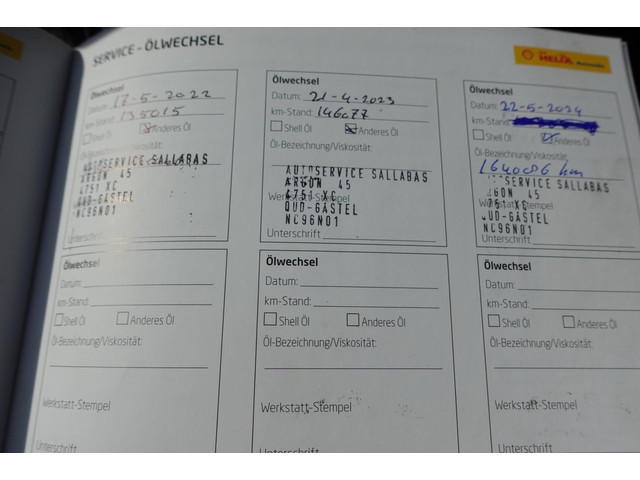 SERVICE - ÖLWECHSEL
HELIX
Ölwechsel
Datum: 17-5-2022
km-Stand: 135015
Shell Öl Anderes Öl
Öl-Bezeichnung/Viskosität:
AUTOSERVICE SALLABAS
ARGON 45
4751 XC
OUD-GASTEL
NC96N01
Ölwechsel
Datum: 21-4-2023
km-Stand: 146077
Shell Öl Anderes Öl
Öl-Bezeichnung/Viskosität:
AUTOSERVICE SALLABAS
ARGON 45
4751 XC
Werkstatt-Stempel
OUD-GASTEL
NC96N01
Unterschrift
Ölwechsel
Datum: 22-5-2024
km-Stand:
Shell Öl Anderes Öl
Öl-Bezeichnung/Viskosität:
164086 km
SERVICE SALLABAS
GON 45
XC
UD-GASTEL
NC96N01
Unterschrift
Ölwechsel
Datum:
km-Stand:
Shell Öl Anderes Öl
Öl-Bezeichnung/Viskosität:
Werkstatt-Stempel
Unterschrift
Ölwechsel
Datum:
km-Stand:
Shell Öl Anderes Öl
Öl-Bezeichnung/Viskosität:
Werkstatt-Stempel
Unterschrift
Ölwechsel
Datum:
km-Stand:
Shell Öl Anderes Öl
Öl-Bezeichnung/Viskosität:
Werkstatt-Stempel
Unterschrift